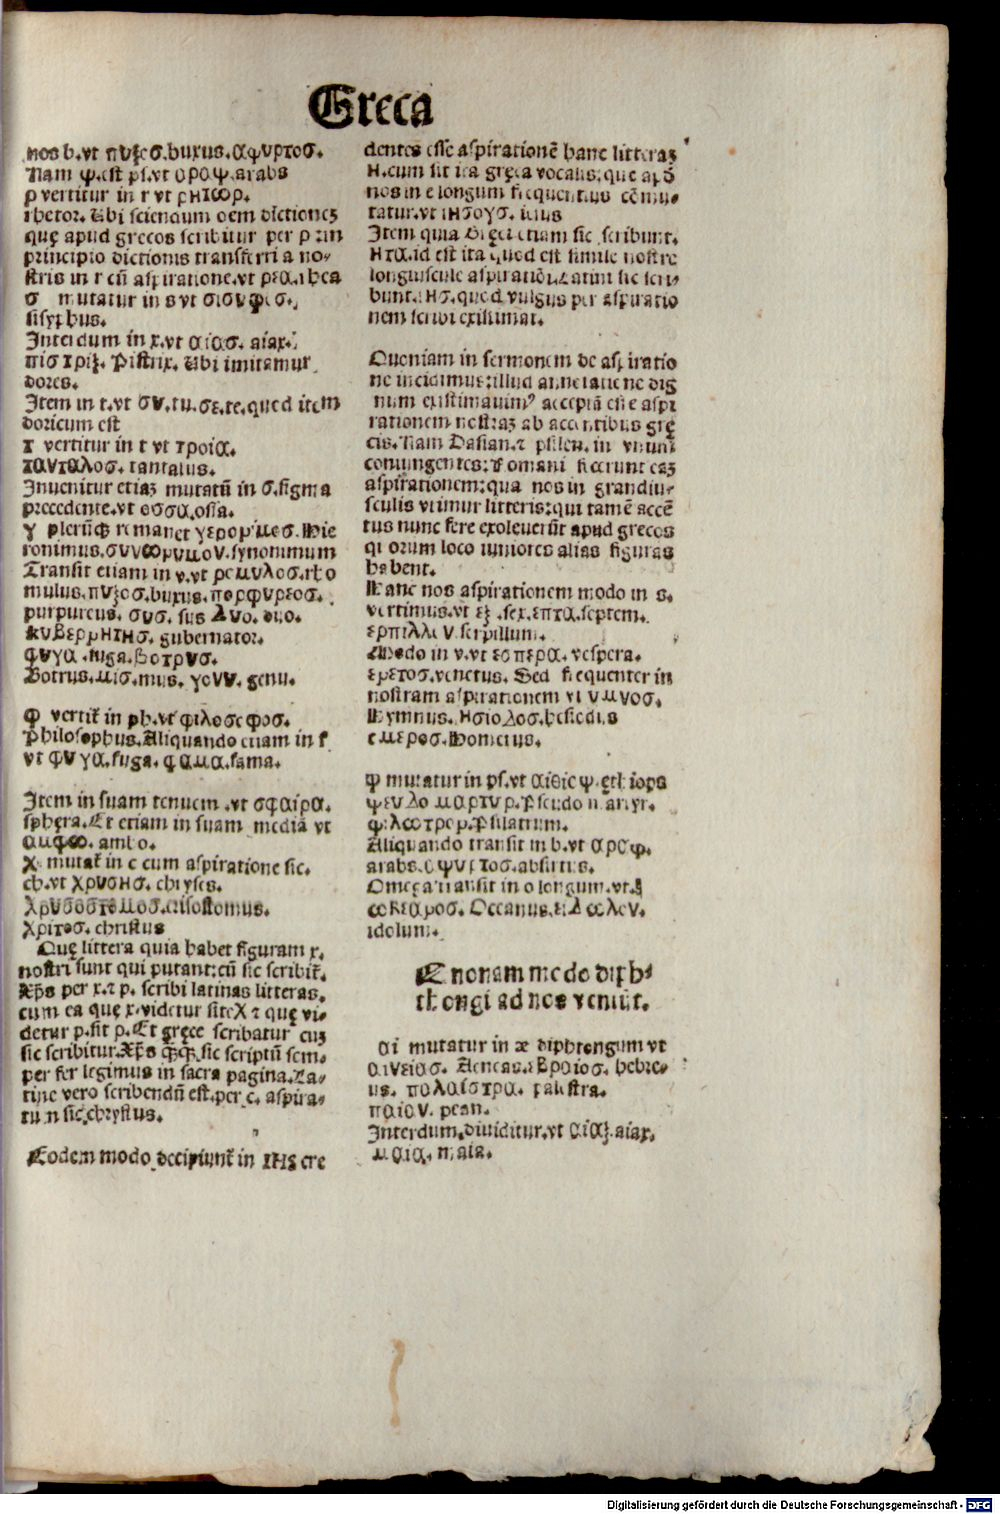 Greca
nos b.vt πυξεσ.buxus.αφυρτοσ.
Nam ψ.est ps.vt αραψ.arabs
ρ vertitur in r vt ρητωρ.
rhetor. Ubi sciendum oem dictionez
quę apud grecos scribitur per ρ in
principio dictionis transferri a no-
stris in r cū aspiratione.vt ρεα.rhea
σ mutatur in s vt σισυφισ.
sisyphus.
Interdum in x.vt αιασ. aiax.
πιστριξ. Pistrix. Ubi imitamur
dores.
Item in t.vt συ.tu.σε.te.quod item
doricum est
τ vertitur in t vt τροία.
ταυταλοσ. tantalus.
Inuenitur etiaz mutatū in σ.sigma
precedente.vt οσσα.ossa.
γ plerūqꝫ remanet γερομμεσ.Hie
ronimus.συνωρυμου.synonimum
Transit etiam in v.vt ρεμυλοσ.rho
mulus.πυξοσ.buxus.πορφυρεοσ.
purpureus. συσ. sus λυο.duo.
κυβερρητησ. gubernator.
φυγα .fuga.βοτρυσ.
Botrus.μισ.mus. γουυ. genu.
φ vertit̄ in ph.vt φιλοσεφοσ.
Philosophus.Aliquando etiam in f
vt φυγα.fuga. φαμα.fama.
Item in suam tenuem .vt σφαίρα.
sphęra.Et etiam in suam mediā vt
αμφω. ambo.
χ mutat̄ in c cum aspiratione sic.
ch.vt χρυσησ. chryses.
χρυσοστομοσ.crisostomus.
χριτοσ. christus
Quę littera quia habet figuram x.
nostri sunt qui putant:cū sic scribit̄.
xp̄s per x.⁊ p. scribi latinas litteras.
cum ea quę x.videtur sit eχ ⁊ quę vi-
detur p.sit ρ.Et gręce scribatur cuz
sic scribitur.Xp̄s qꝫqꝫ sic scriptū sem-
per fer legimus in sacra pagina.La-
tine vero scribendū est.per c. aspira-
tum sic.chrystus.
Eodem modo decipiunt̄ in ιηs cre
dentes esse aspirationē hanc litteraz
H.cum sit ita gręca vocalis:que apđ
nos in e longum frequentius cōmu-
tatur.vt ιησουσ. iesus
Item quia Gręci etiam sic scribunt.
Ητα.id est ita quod est simile nostre
longiuscule aspirationi.Latini sic scri-
bunt.ιησ.quod vulgus per aspiratio
nem scribi existimat.
Quoniam in sermonem de aspiratio
ne incidimus:illud annotatione dig
num existimauimꝰ acceptā esse aspi
rationem nostraz ab accentibus grę
cis.Nam Dasian.⁊ psilen. in vnum
coniungentes:Romani fecerunt eaz
aspirationem:qua nos in grandiu-
sculis vtimur litteris:qui tamē accē
tus nunc fere exoleuerūt apud grecos
quorum loco iuniores alias figuras
habent.
Hanc nos aspirationem modo in s.
vertimus.vt εξ .sex.επτα.septem.
ερπιλλι υ serpillum.
Modo in v.vt εσπερα. vespera.
ερετοσ.venetus. Sed frequenter in
nostram aspirationem vt υμυοσ.
Hymnus. Ησιολοσ.hesiodus
εμεροσ.Homerus.
ψ mutatur in ps.vt αιθιεψ.ęthiops
ψευλο μαρτυρ.Pseudo martyr.
ψιλωτρορ.Psilatrum.
Aliquando transit in b.vt αραψ.
arabs.αψυετοσ.absirtus.
Omega transit in o longum.vt.
ωκεαροσ. Oceanus.ειλωλου.
idolum.
Enonam modo diph-
thongi ad nos veniūt.
αι mutatur in æ diphtongum vt
αινειασ. Aeneas.εβραιοσ. hebre-
us. παλαίστρα. palistra.
παιου. pean.
Interdum.diuiditur.vt αιαξ.aiax.
μαια. maia.
Digitalisierung gefördert durch die Deutsche Forschungsgemeinschaft - DFG